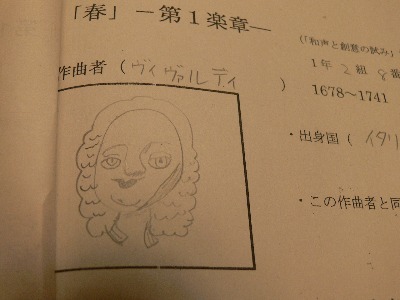 「春」－第１楽章―
(「和声と創意の試み」
１年 2 組 8 番
作曲者 ( ヴィヴァルディ )
1678～1741
・出身国 ( イタリ
・この作曲者と同